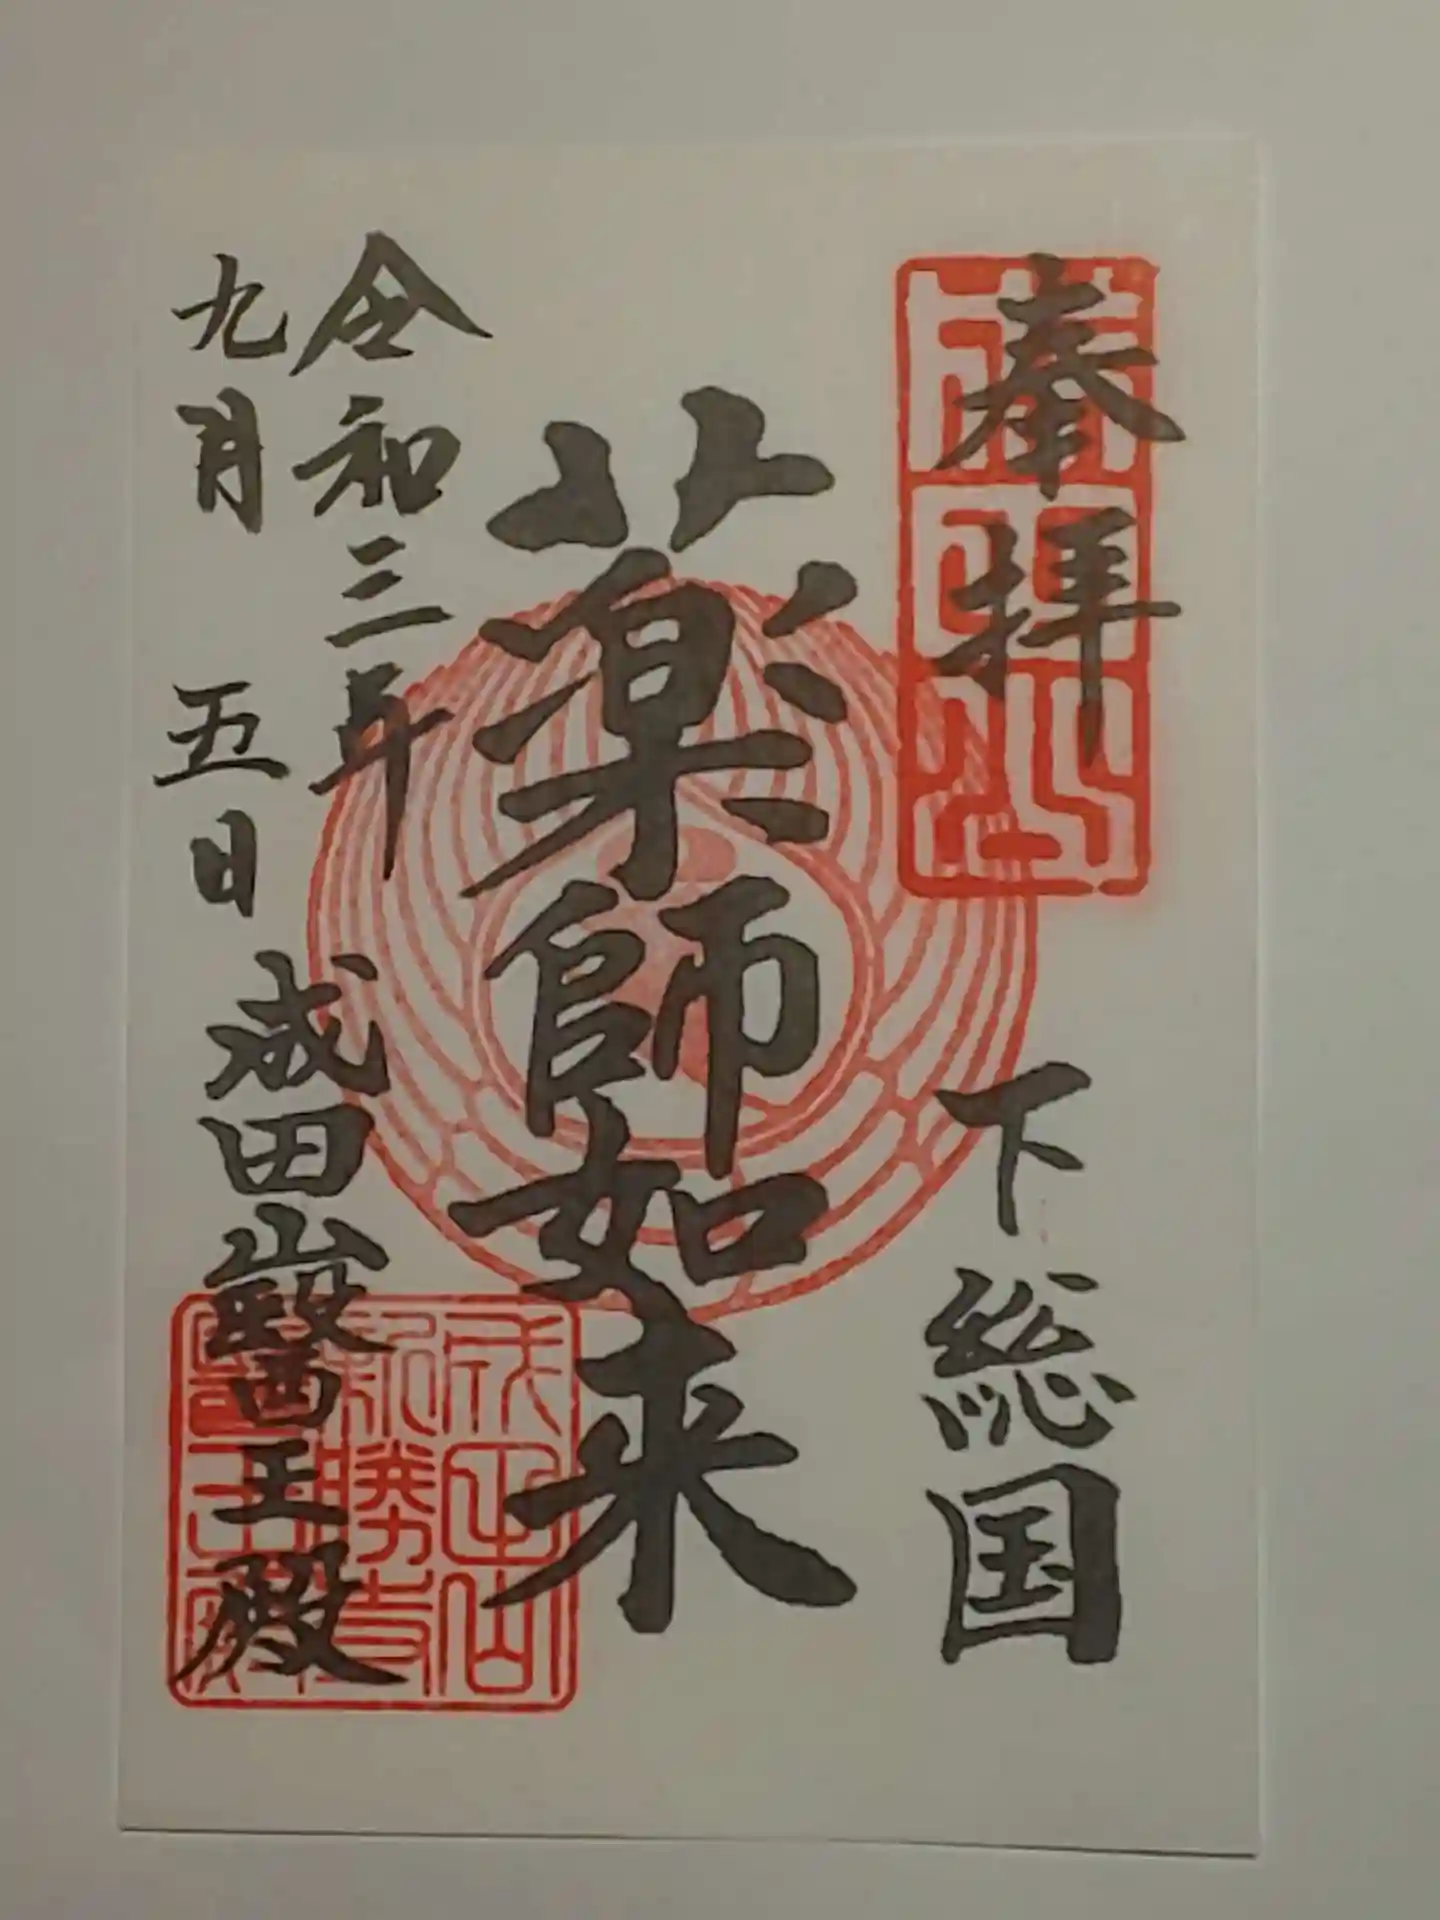 奉拝
下総国
成田山
薬師如来
令和三年
九月五日
成田山醫王殿
成田山
新勝寺
醫王殿